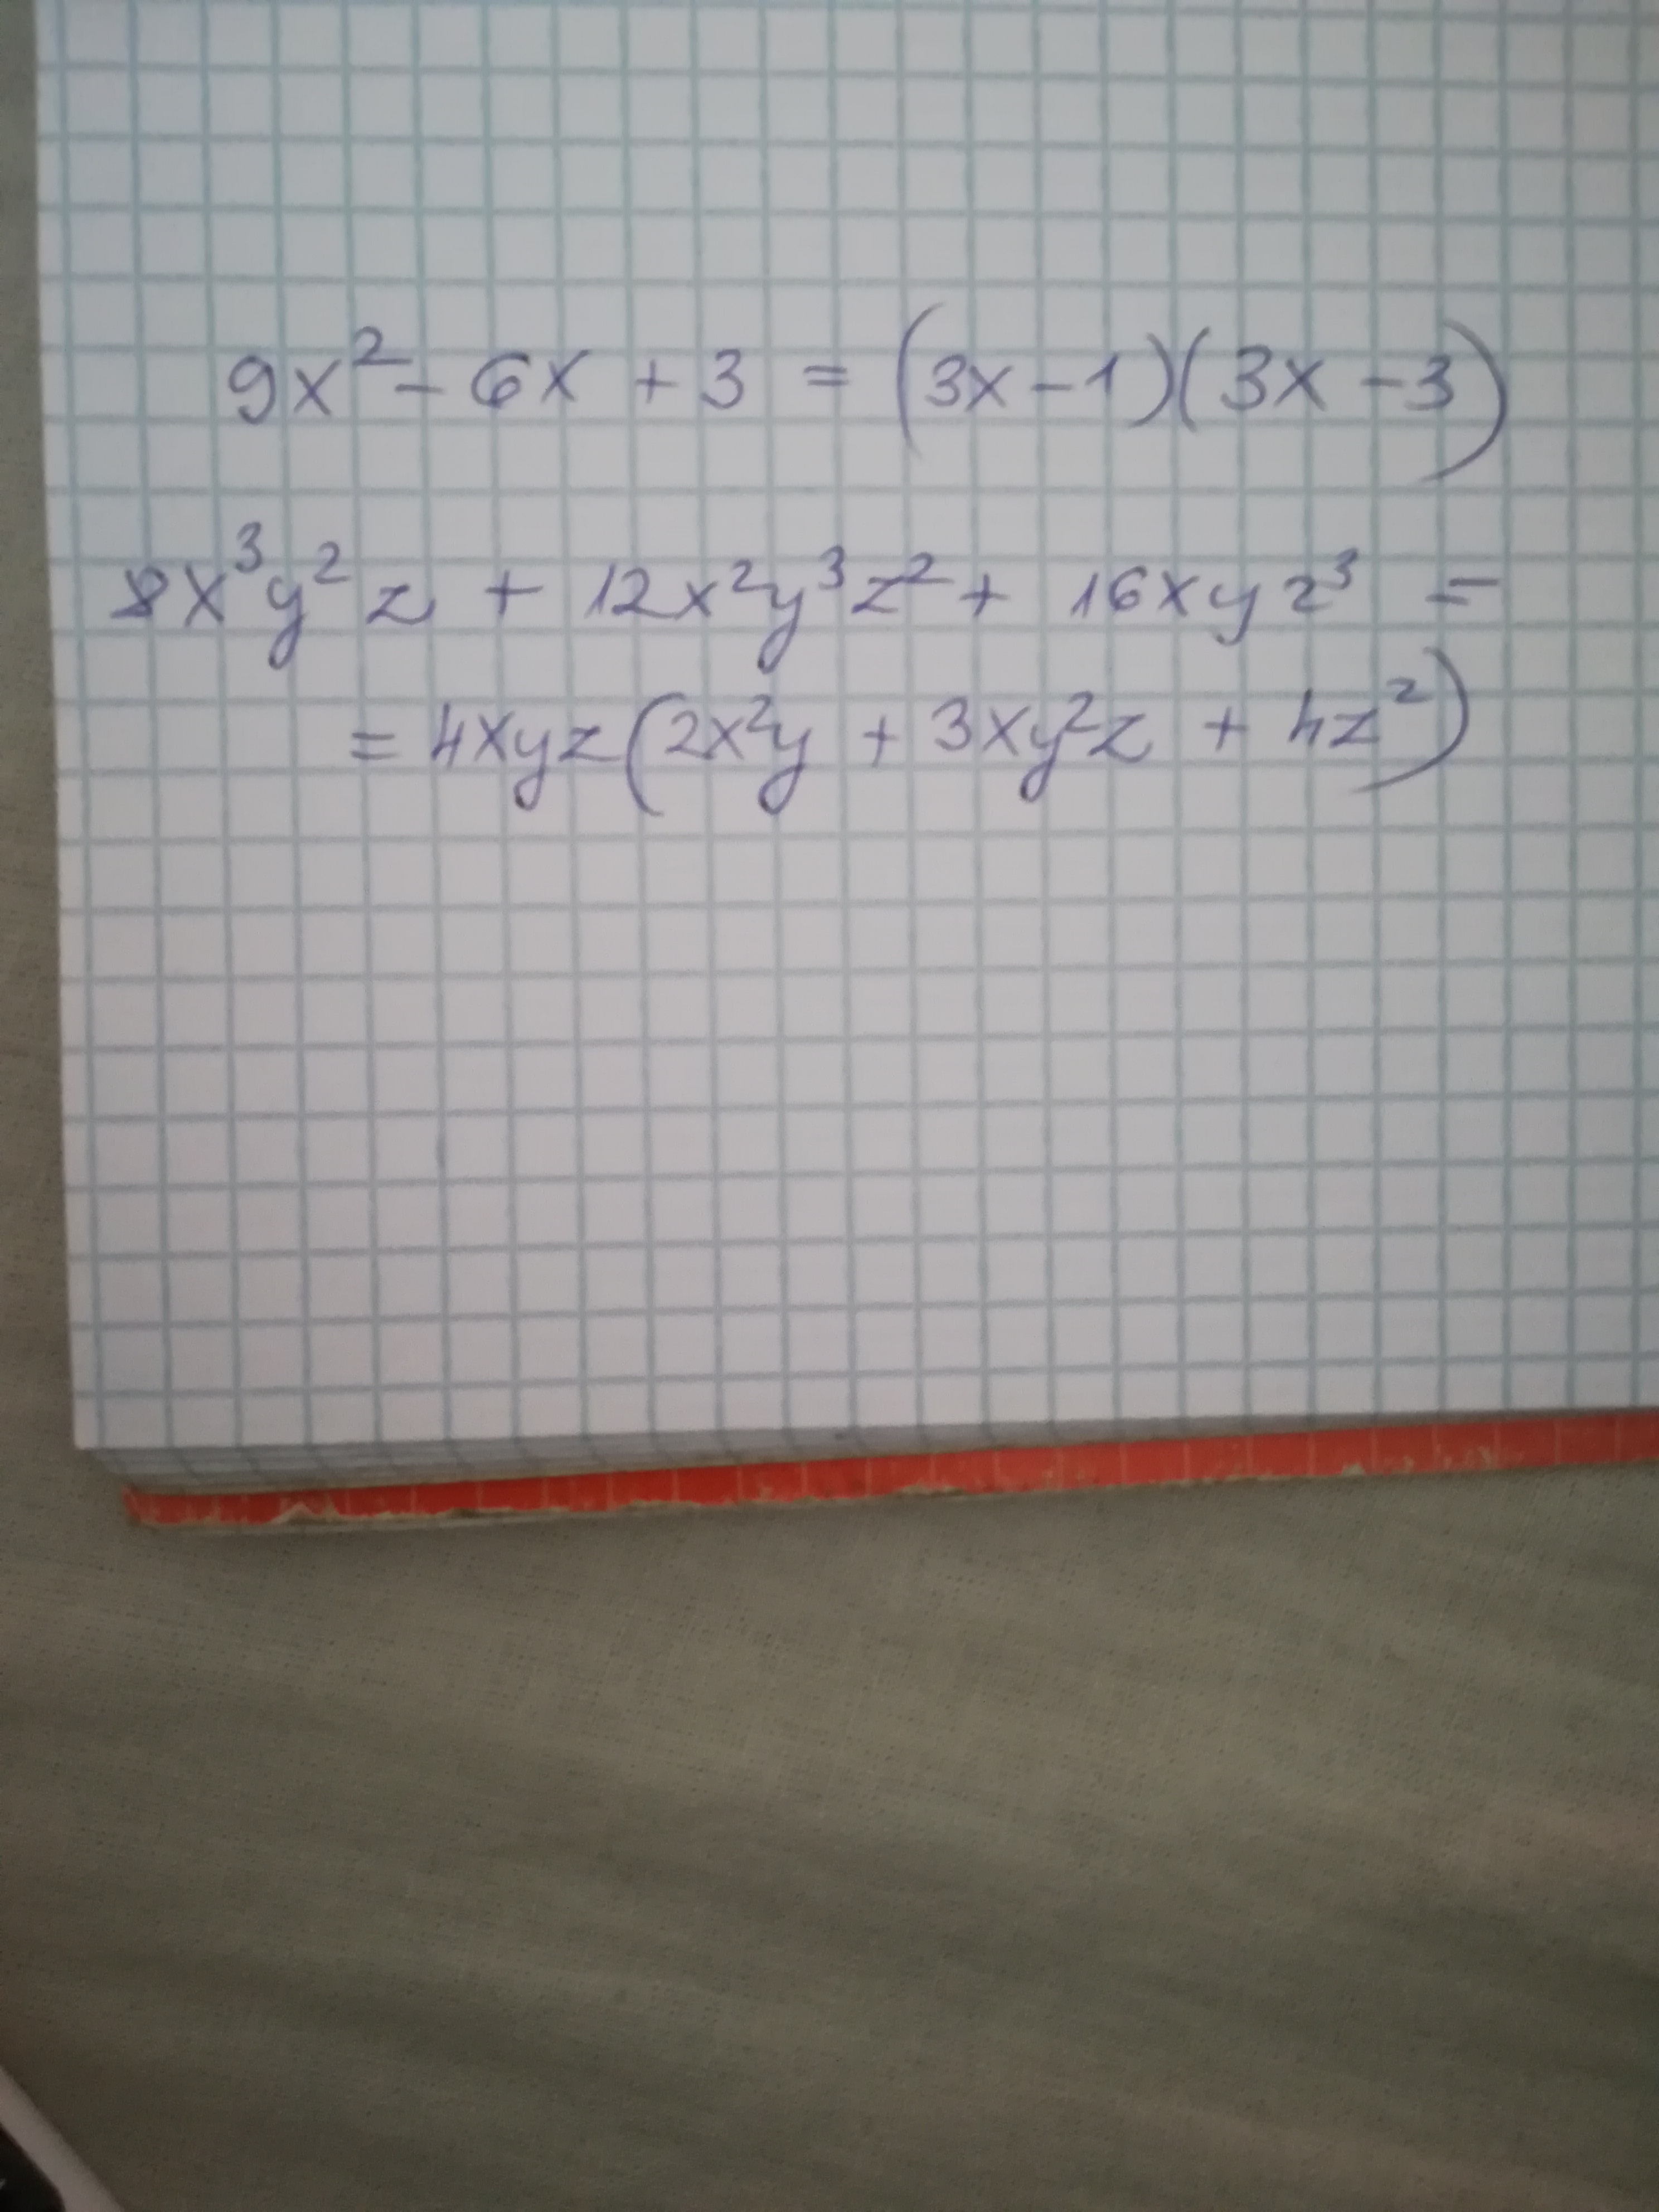 9x² - 6x + 3 = (3x - 1)(3x - 3)
8x³y²z + 12x²y³z² + 16xyz³ =
= 4xyz(2x²y + 3xy²z + 4z²)